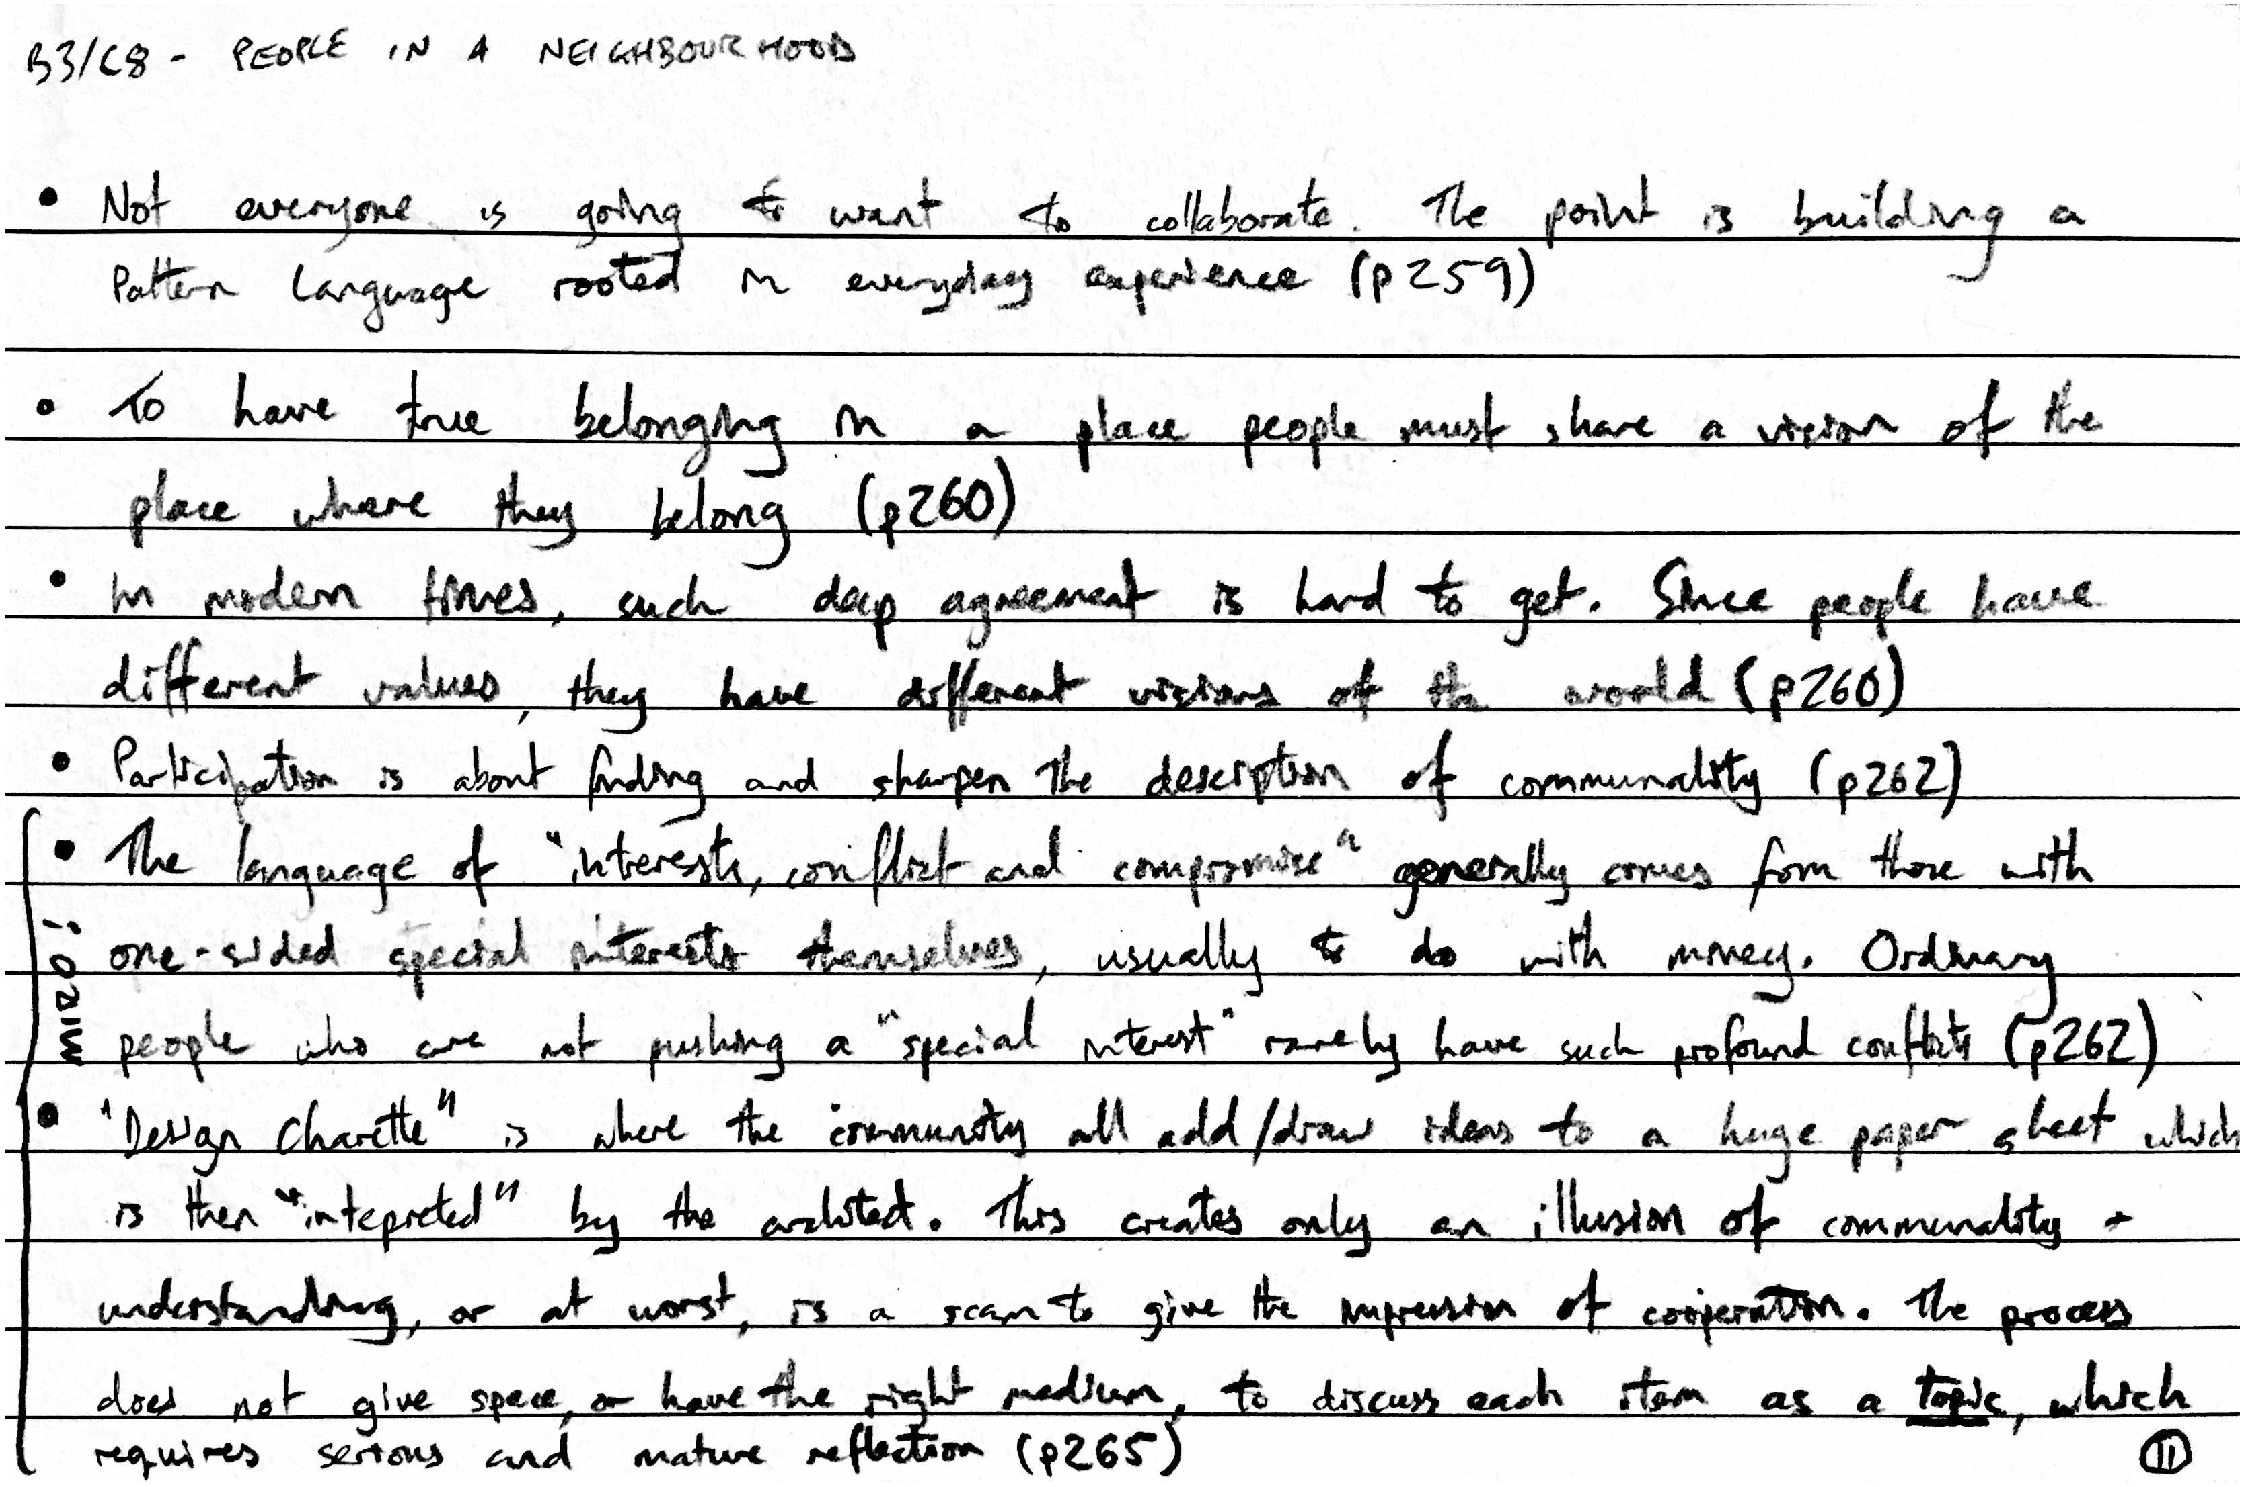 B3/C8 - PEOPLE IN A NEIGHBOURHOOD
• Not everyone is going to want to collaborate. The point is building a
Pattern Language rooted in everyday experience (p259)
• To have true belonging in a place people must share a vision of the
place where they belong (p260)
• In modern times, such deep agreement is hard to get. Since people have
different values, they have different visions of the world (p260)
• Participation is about finding and sharpen the description of communality (p262)
• The language of "interests, conflict and compromise" generally comes from those with
one-sided special interests themselves, usually to do with money. Ordinary
people who are not pushing a "special interest" rarely have such profound conflicts (p262)
• "Design Charette" is where the community all add/draw ideas to a huge paper sheet which
is then "intepreted" by the architect. This creates only an illusion of communality +
understanding, or at worst, is a scam to give the impression of cooperation. The process
does not give space, or have the right medium, to discuss each item as a topic, which
requires serious and mature reflection (p265)
MIRO!
11